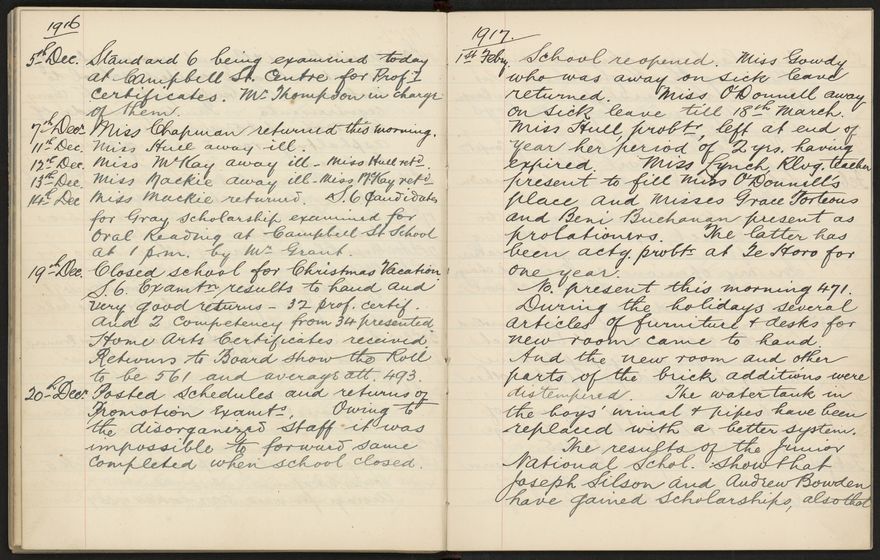 1916
5th Dec. Standard 6 being examined today
at Campbell St. Centre for Prof.y
certificates. Mr. Thompson in charge
of them.
7th Dec. Miss Chapman returned this morning.
11th Dec. Miss Hull away ill.
12th Dec. Miss McKay away ill - Miss Hull ret.d
13th Dec. Miss Mackie away ill - Miss McKay ret.d
14th Dec Miss Mackie returned. S.6 Candidates
for Gray Scholarship examined for
Oral Reading at Campbell St School
at 1 p.m. by Mr Grant.
19th Dec. Closed school for Christmas Vacation
S.6. Examtn results to hand and
very good returns - 32 prof. certif.
and 2 Competency from 34 presented.
Home Arts Certificates received.
Returns to Board show the Roll
to be 561 and average att. 493.
20th Decr Posted schedules and returns of
Promotion Examts. Owing to
the disorganized staff it was
impossible to forward same
completed when school closed.
1917
1st Feby. School reopened. Miss Gowdy
who was away on sick leave
returned. Miss O'Donnell away
on sick leave till 18th March.
Miss Hull, probtr, left at end of
year her period of 2 yrs. having
expired. Miss Lynch Rlvg. teacher
present to fill Miss O'Donnell's
place and Misses Grace Porteous
and Beni Buchanan present as
probationers. The latter has
been actg probtr at Te Horo for
one year.
No. present this morning 471.
During the holidays several
articles of furniture & desks for
new room came to hand.
And the new room and other
parts of the brick additions were
distempered. The water tank in
the boys' urinal & pipes have been
replaced with a better system.
The results of the Junior
National Schol. show that
Joseph Silson and Andrew Bowden
have gained scholarships, also that